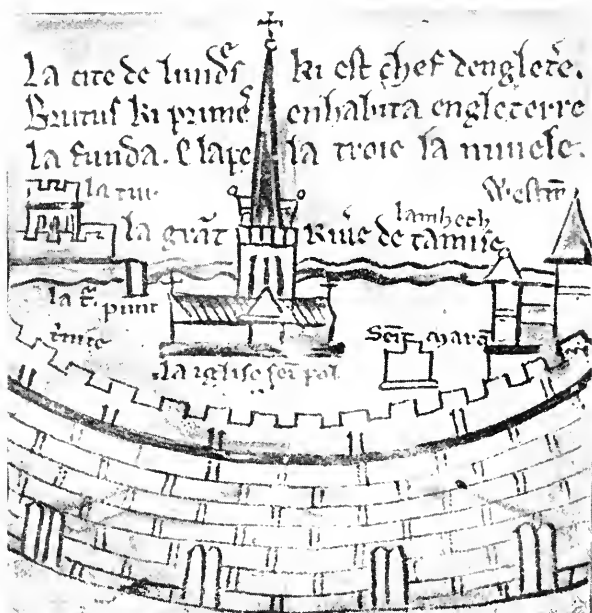 La cite de lundr̃s ki est chef dengletẽ.
Brutus ki primẽs enhabita engleterre
la funda. E lapela troie la nuuele.
la tur
Westm̃
lambeth
la grãt Riũe de tamise
la t̃.
punt
t̃nite
Sẽi
la iglise sẽi pol